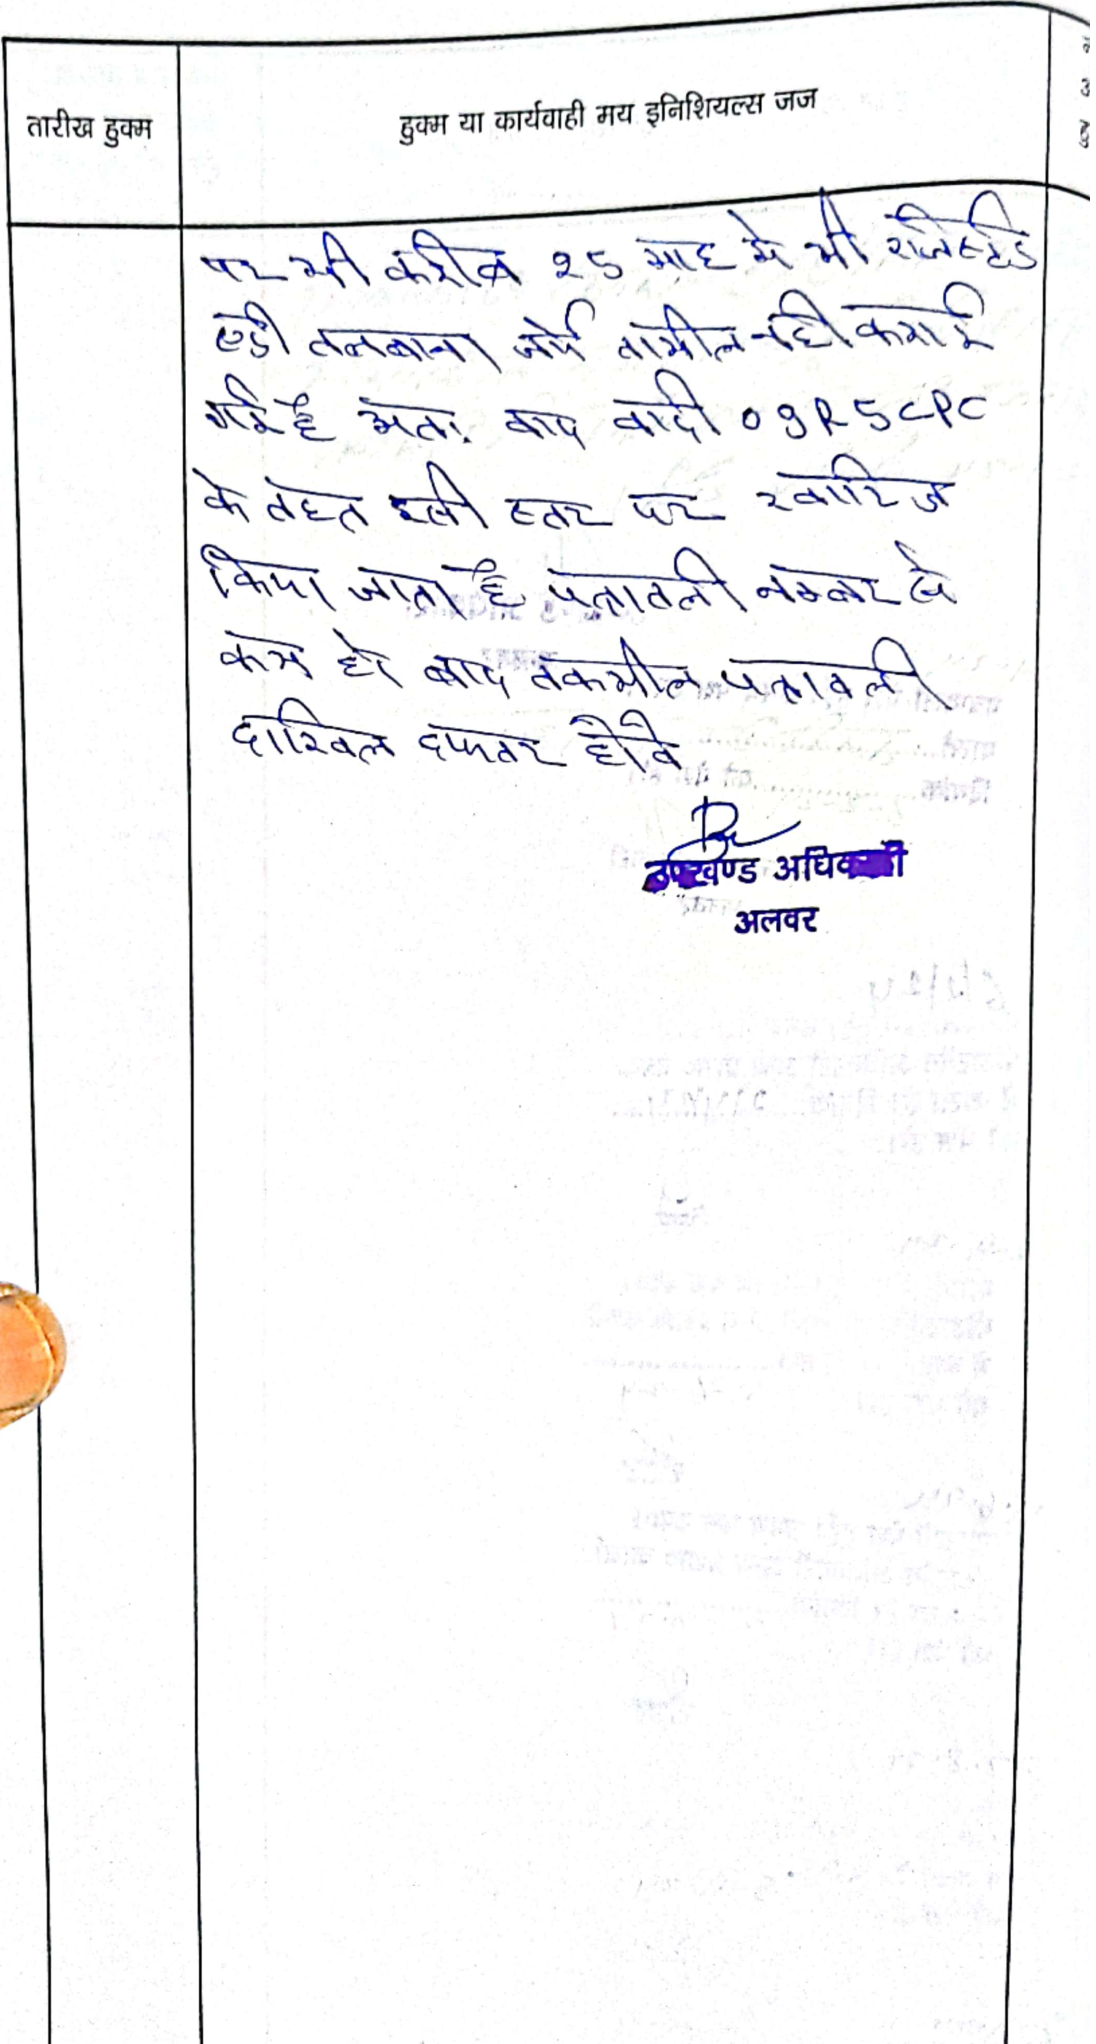 तारीख हुक्म
हुक्म या कार्यवाही मय इनिशियल्स जज
पर भी करीब 25 माह में भी रजिस्टर्ड
एडी तलबाना जेर्ये तामील नहीं कराई
गई है अतः वाद वादी O9R5CPC
के तहत इसी स्तर पर खारिज
किया जाता है, पत्रावली नम्बर से
कम हो बाद तकमील पत्रावली
दाखिल दफ्तर होवे
उपखण्ड अधिकारी
अलवर